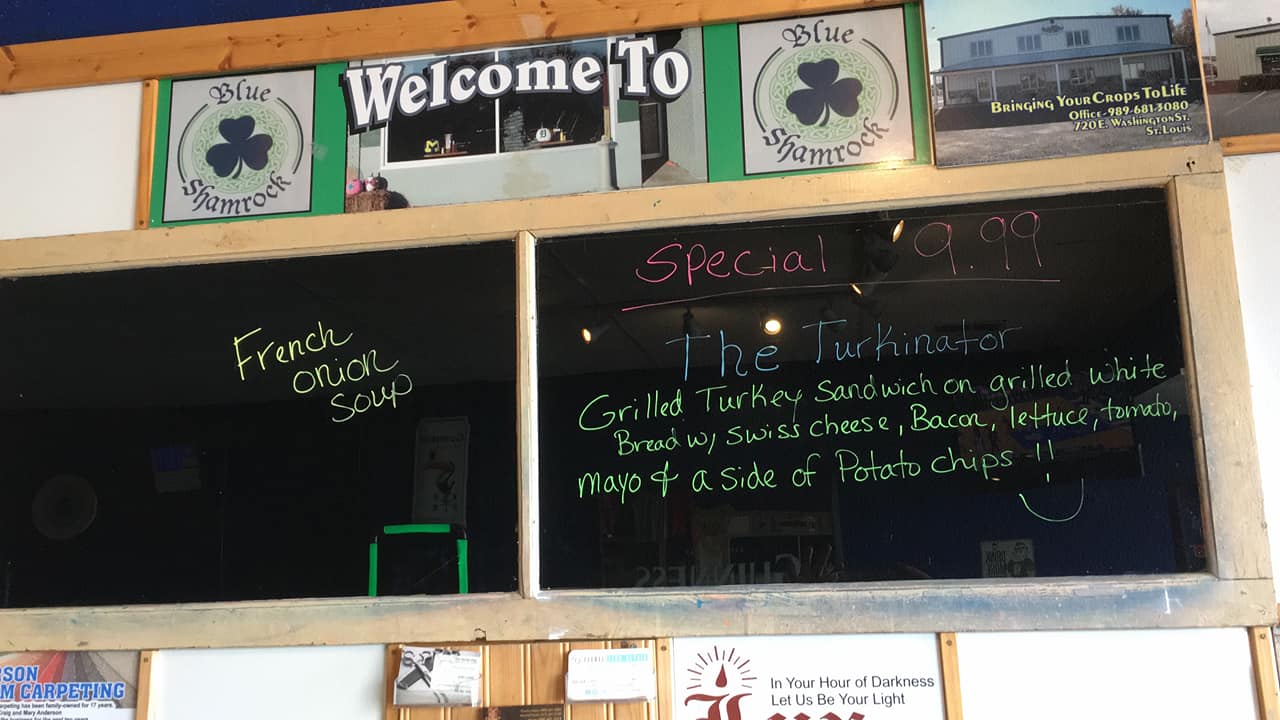 Blue
Shamrock
Welcome To
Blue
Shamrock
Bringing Your Crops To Life
Office - 989-681-3080
720 E. Washington St.
St. Louis
Special 9.99
The Turkinator
Grilled Turkey Sandwich on grilled white
Bread w/ swiss cheese, Bacon, lettuce, tomato,
mayo & a side of Potato chips !!
French
onion
soup
GUINNESS
RSON
M CARPETING
arpeting has been family-owned for 17 years.
Craig and Mary Anderson
In Your Hour of Darkness
Let Us Be Your Light
Lux